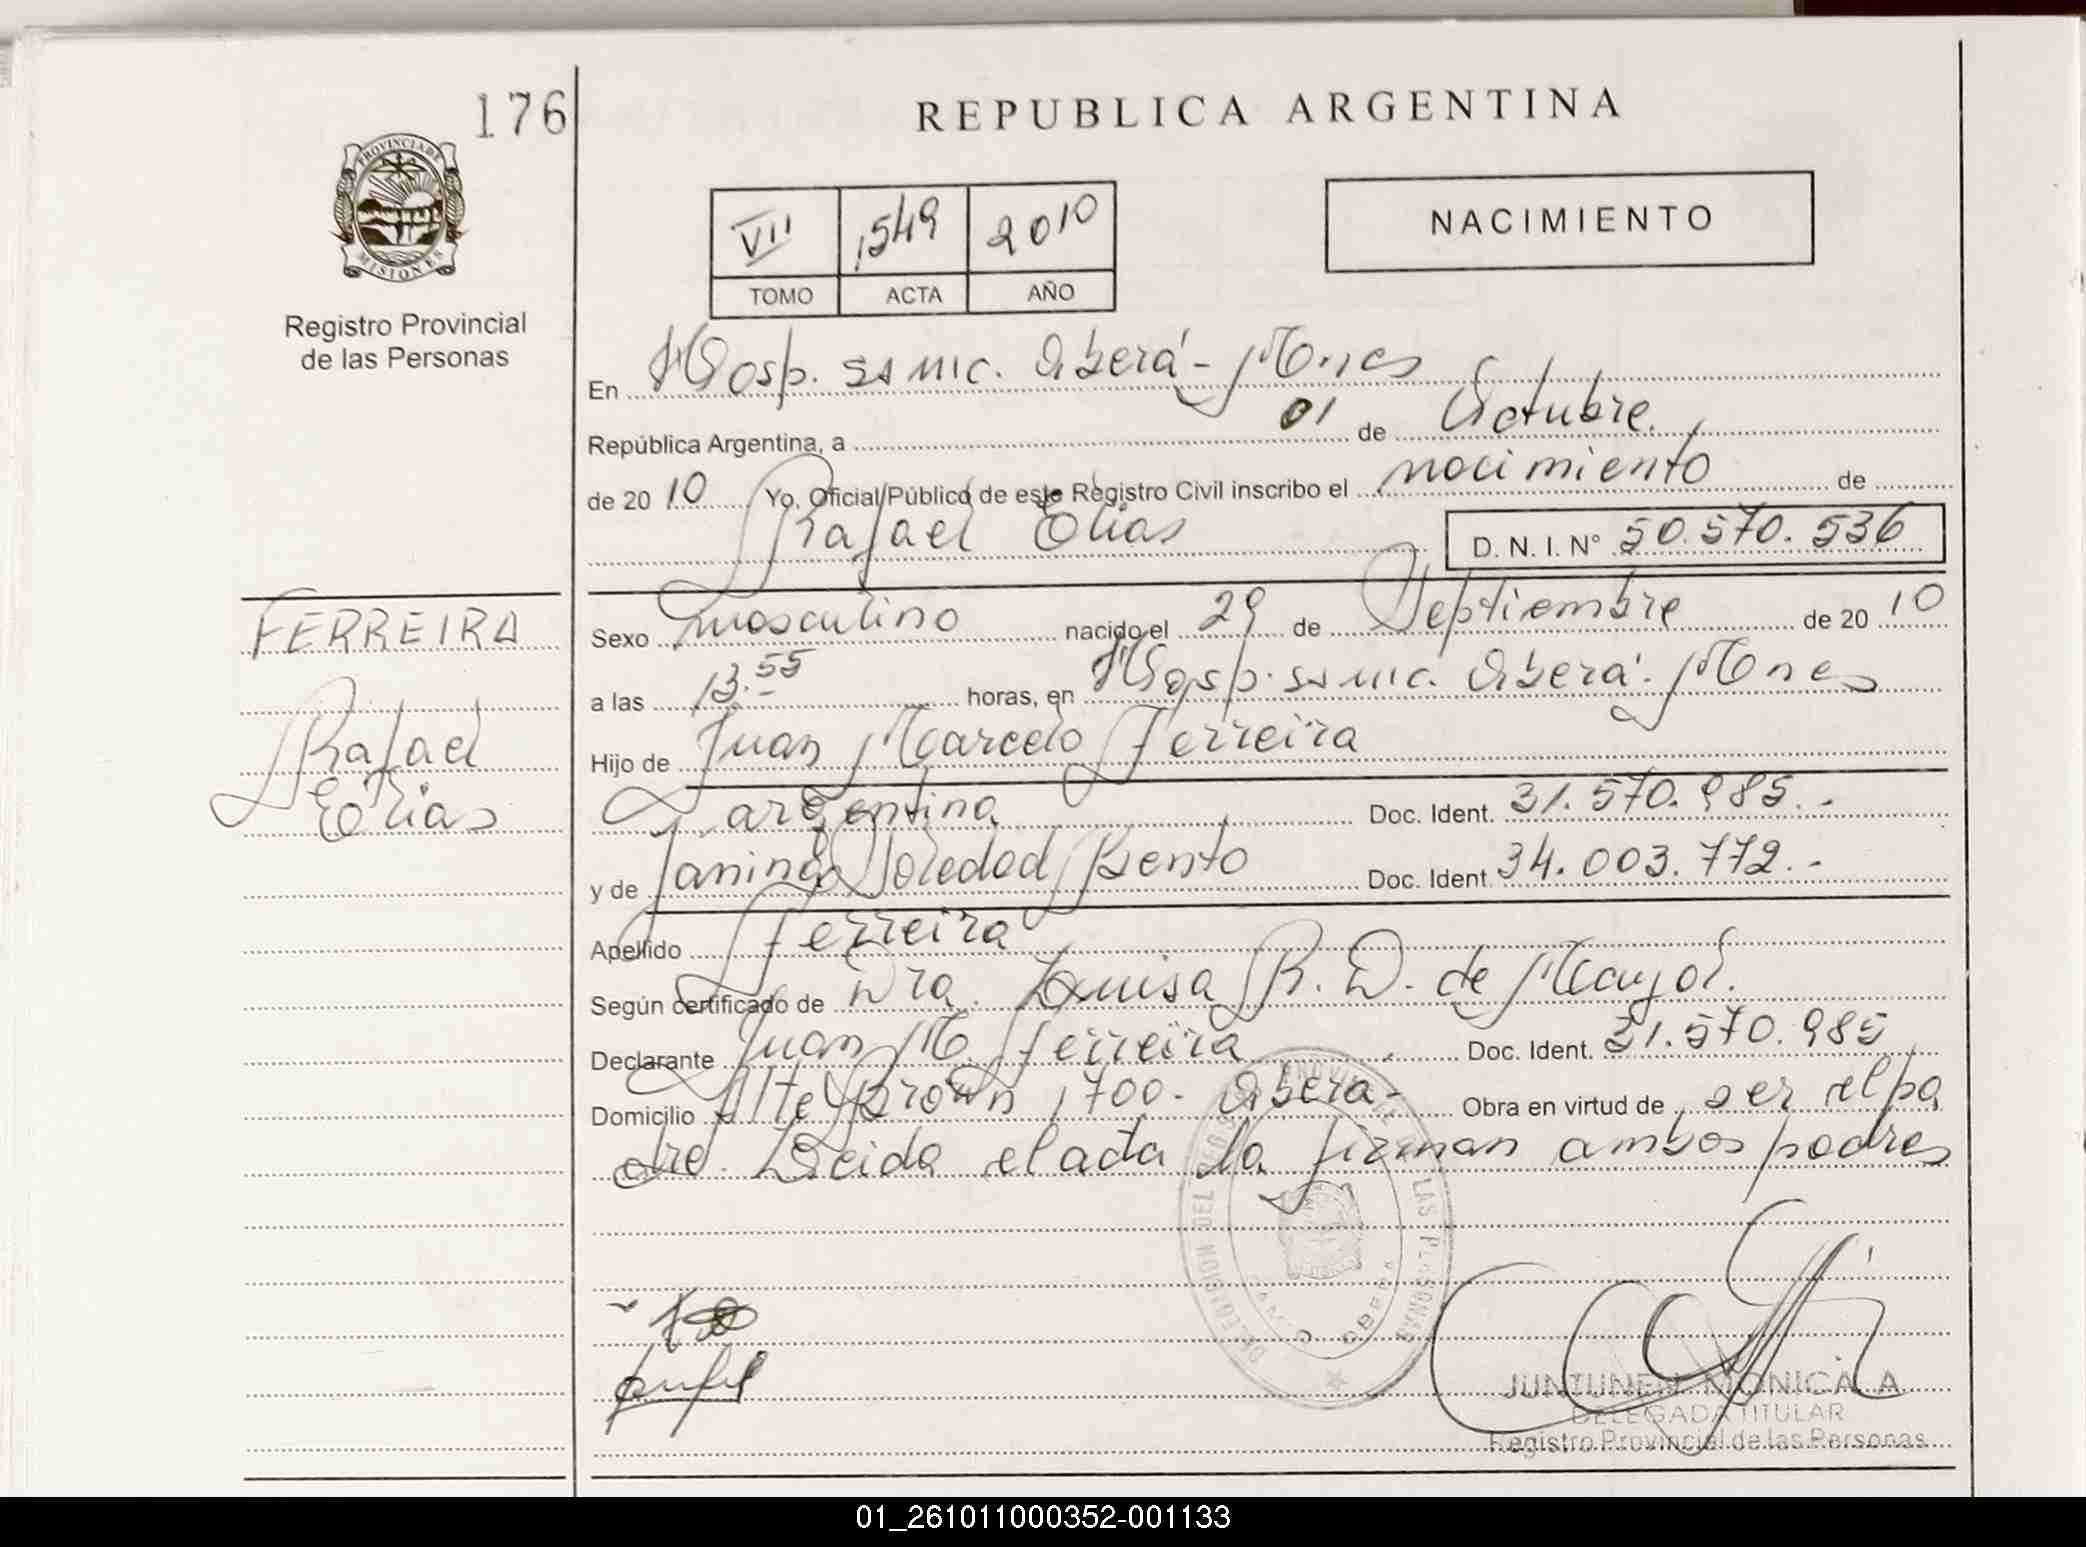 176
PROVINCIA DE
MISIONES
Registro Provincial
de las Personas
REPUBLICA ARGENTINA
VII 1549 2010
TOMO ACTA AÑO
NACIMIENTO
En Hosp. SAMIC. Oberá - Mnes
República Argentina, a 01 de Octubre
de 20 10 Yo, Oficial Público de este Registro Civil inscribo el nacimiento de
Rafael Elias D. N. I. N° 50.570.536
FERREIRA
Rafael
Elias
Sexo masculino nacido el 29 de Septiembre de 20 10
a las 13.55 horas, en Hosp. SAMIC. Oberá. Mnes
Hijo de Juan Marcelo Ferreira
argentina Doc. Ident. 31.570.985.-
y de Janina Soledad Bento Doc. Ident. 34.003.772.-
Apellido Ferreira
Según certificado de Dra. Luisa R. D. de Mayol.
Declarante Juan M. Ferreira Doc. Ident. 31.570.985
Domicilio Alte Brown 1700 - Oberá - Obra en virtud de ser el pa
dre. Leida el acta la firman ambos padres
DELEGACION DEL PROVINCIAL DE LAS PERSONAS
OBERA
JUNTUNEN MONICA A
DELEGADA TITULAR
Registro Provincial de las Personas
01_261011000352-001133